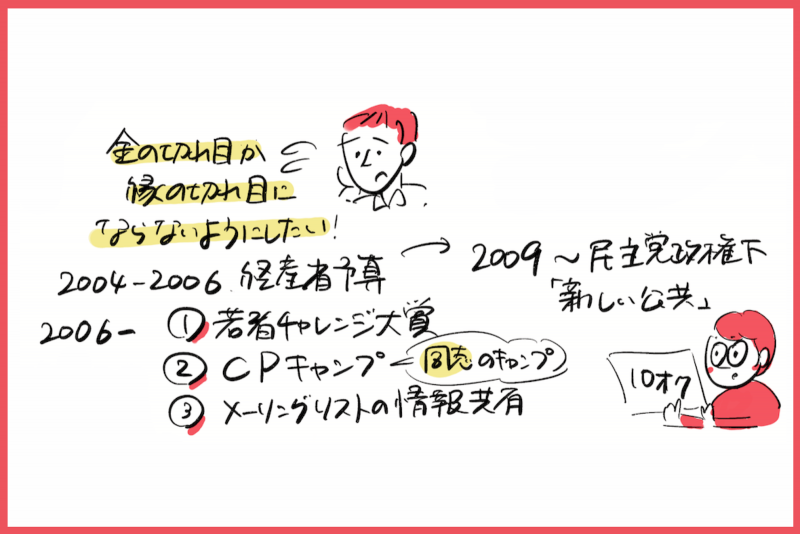 金の切れ目が
縁の切れ目に
ならないようにしたい!
2004-2006 経産省予算
2009~民主党政権下
「新しい公共」
2006- ①若者チャレンジ大賞
②CPキャンプ 同志のキャンプ
③メーリングリストの情報共有
10オク